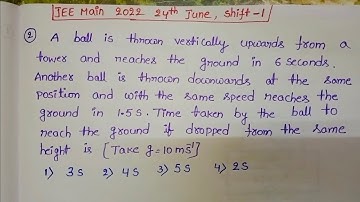 JEE Main 2022 24th June, Shift-1
② A ball is thrown vertically upwards from a
tower and reaches the ground in 6 seconds.
Another ball is thrown downwards at the same
position and with the same speed reaches the
ground in 1.5 s. Time taken by the ball to
reach the ground if dropped from the same
height is [Take g=10 ms⁻¹]
1) 3 s 2) 4 s 3) 5 s 4) 2 s